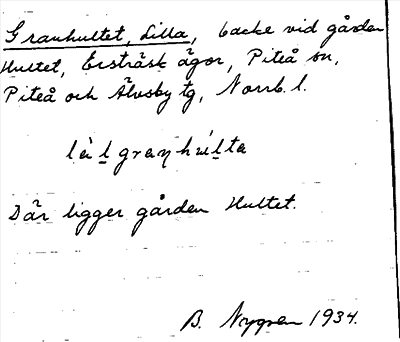 Granhultet, Lilla, backe vid gården
Hultet, Ersträsk ägor, Piteå sn,
Piteå och Älvsby tg, Norrb. l.
Där ligger gården Hultet.
B. Nygren 1934.